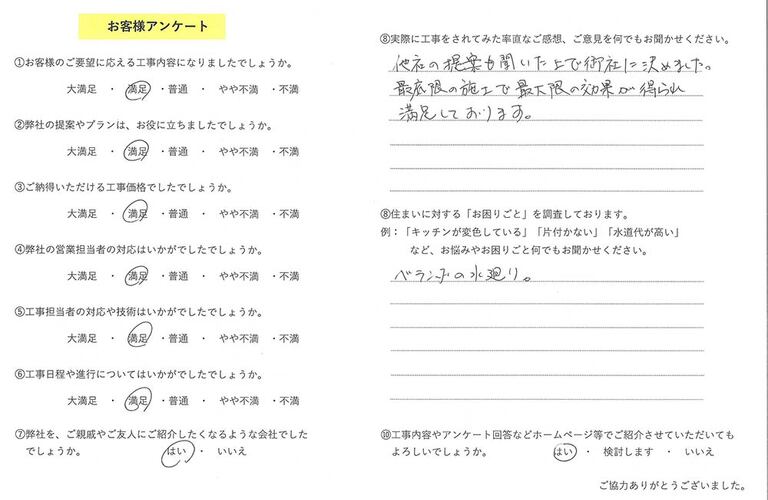 お客様アンケート
①お客様のご要望に応える工事内容になりましたでしょうか。
大満足 ・ 満足 ・普通 ・ やや不満 ・不満
②弊社の提案やプランは、お役に立ちましたでしょうか。
大満足 ・ 満足 ・普通 ・ やや不満 ・不満
③ご納得いただける工事価格でしたでしょうか。
大満足 ・ 満足 ・普通 ・ やや不満 ・不満
④弊社の営業担当者の対応はいかがでしたでしょうか。
大満足 ・ 満足 ・普通 ・ やや不満 ・不満
⑤工事担当者の対応や技術はいかがでしたでしょうか。
大満足 ・ 満足 ・普通 ・ やや不満 ・不満
⑥工事日程や進行についてはいかがでしたでしょうか。
大満足 ・ 満足 ・普通 ・ やや不満 ・不満
⑦弊社を、ご親戚やご友人にご紹介したくなるような会社でした
でしょうか。 はい ・ いいえ
⑧実際に工事をされてみた率直なご感想、ご意見を何でもお聞かせください。
他社の提案も聞いた上で御社に決めました。
最底限の施工で最大限の効果が得られ
満足しております。
⑧住まいに対する「お困りごと」を調査しております。
例：「キッチンが変色している」「片付かない」「水道代が高い」
など、お悩みやお困りごと何でもお聞かせください。
ベランダの水廻り。
⑩工事内容やアンケート回答などホームページ等でご紹介させていただいても
よろしいでしょうか。 はい ・ 検討します ・ いいえ
ご協力ありがとうございました。